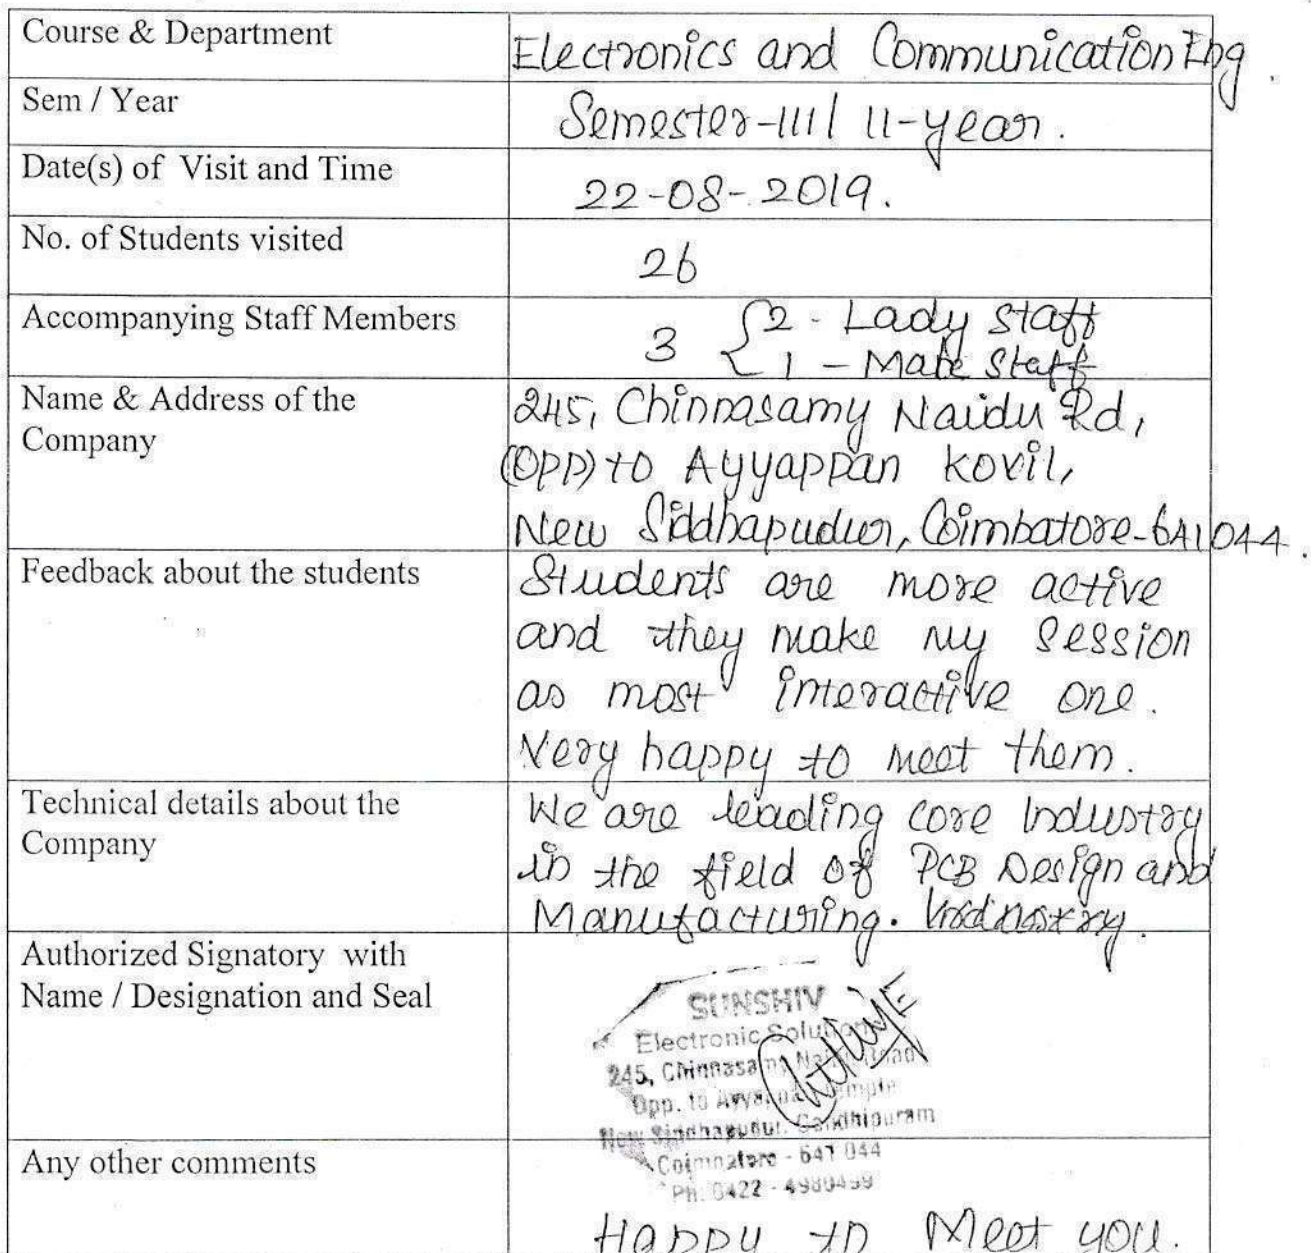 Course & Department
Electronics and Communication Eng.
Sem / Year
Semester-III / II-year.
Date(s) of Visit and Time
22-08-2019.
No. of Students visited
26
Accompanying Staff Members
3 { 2 - Lady staff
1 - Male Staff
Name & Address of the
Company
245, Chinnasamy Naidu Rd,
(Opp) to Ayyappan kovil,
New Siddhapudur, Coimbatore-641044.
Feedback about the students
Students are more active
and they make my session
as most interactive one.
Very happy to meet them.
Technical details about the
Company
We are leading core Industry
in the field of PCB Design and
Manufacturing.
Authorized Signatory with
Name / Designation and Seal
SUNSHIV
Electronic Solution
245, Chinnasamy Naidu Road
Opp. to Ayyappan Temple
New Siddhapudur, Gandhipuram
Coimbatore - 641 044
Ph: 0422 - 4980499
Any other comments
Happy to Meet you.